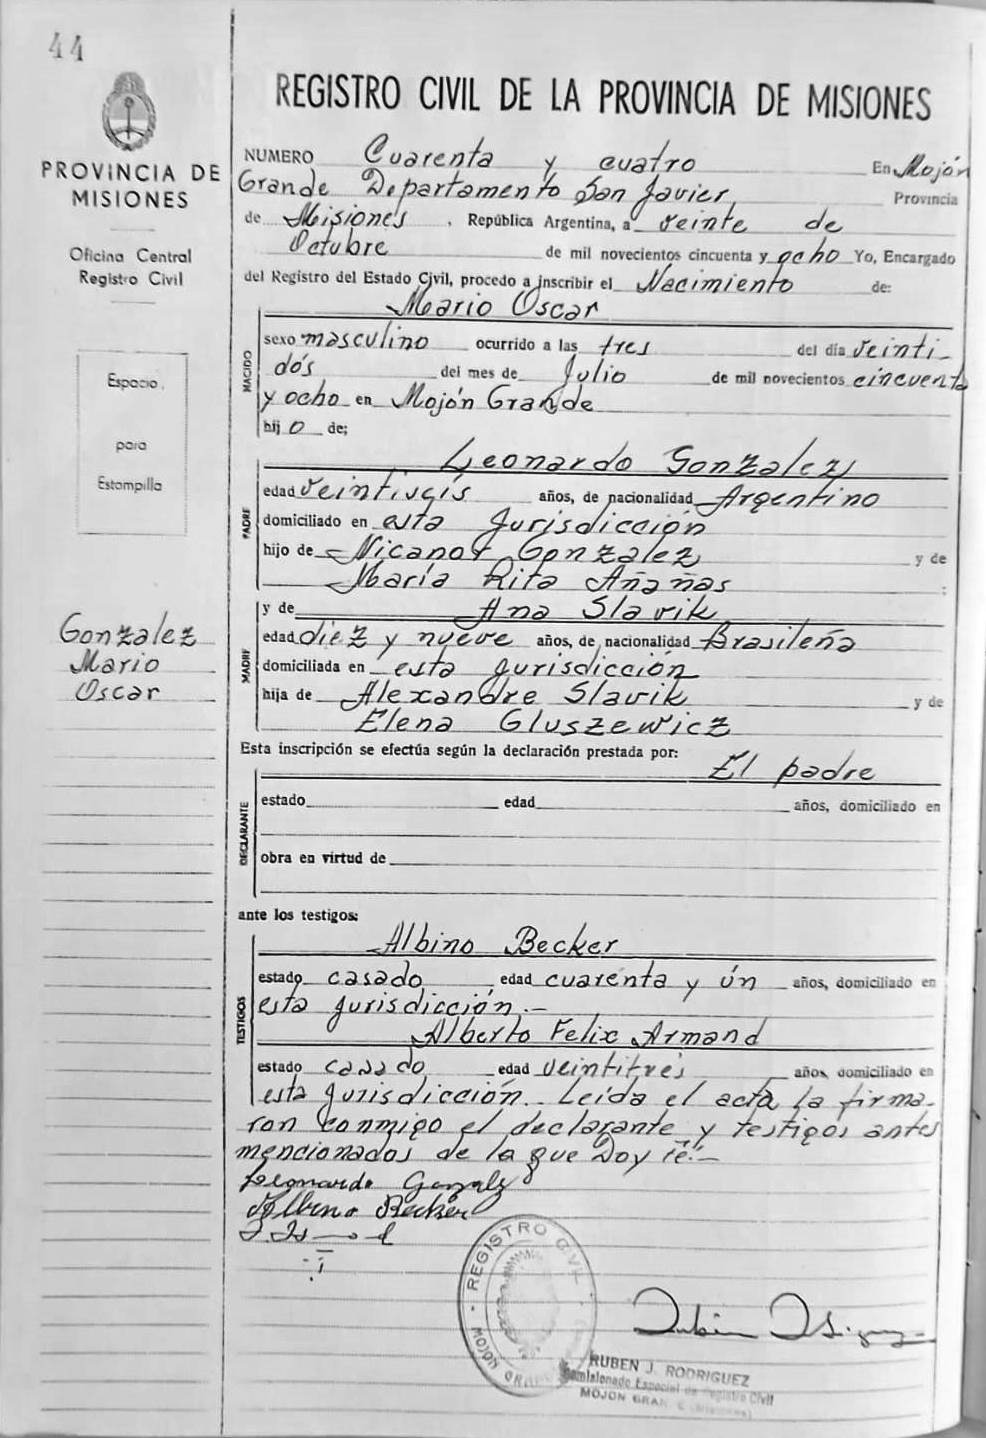 44
REGISTRO CIVIL DE LA PROVINCIA DE MISIONES
PROVINCIA DE
MISIONES
Oficina Central
Registro Civil
Espacio
para
Estampilla
Gonzalez
Mario
Oscar
NUMERO Cuarenta y cuatro En Mojón
Grande Departamento San Javier Provincia
de Misiones, República Argentina, a veinte de
Octubre de mil novecientos cincuenta y ocho Yo, Encargado
del Registro del Estado Civil, procedo a inscribir el Nacimiento de:
Mario Oscar
NACIDO
sexo masculino ocurrido a las tres del día veinti-
dós del mes de Julio de mil novecientos cincuenta
y ocho en Mojón Grande
hij o de;
Leonardo Gonzalez
PADRE
edad veintiseis años, de nacionalidad Argentino
domiciliado en esta jurisdicción
hijo de Nicanor Gonzalez y de
María Rita Añañas :
y de Ana Slavik
MADRE
edad diez y nueve años, de nacionalidad Brasileña
domiciliada en esta jurisdicción
hija de Alexandre Slavik y de
Elena Gluszewicz
Esta inscripción se efectúa según la declaración prestada por:
El padre
DECLARANTE
estado edad años, domiciliado en
obra en virtud de
ante los testigos:
Albino Becker
TESTIGOS
estado casado, edad cuarenta y ún años, domiciliado en
esta jurisdicción.-
Alberto Felix Armand
estado casado edad veintitrés años, domiciliado en
esta jurisdicción. Leída el acta la firma-
ron conmigo el declarante y testigos antes
mencionados de la que Doy fé.-
Leonardo Gonzalz
Albino Becker
REGISTRO CIVIL
MOJON GRANDE
RUBEN J. RODRIGUEZ
Comisionado Especial de Registro Civil
MOJON GRANDE (Misiones)